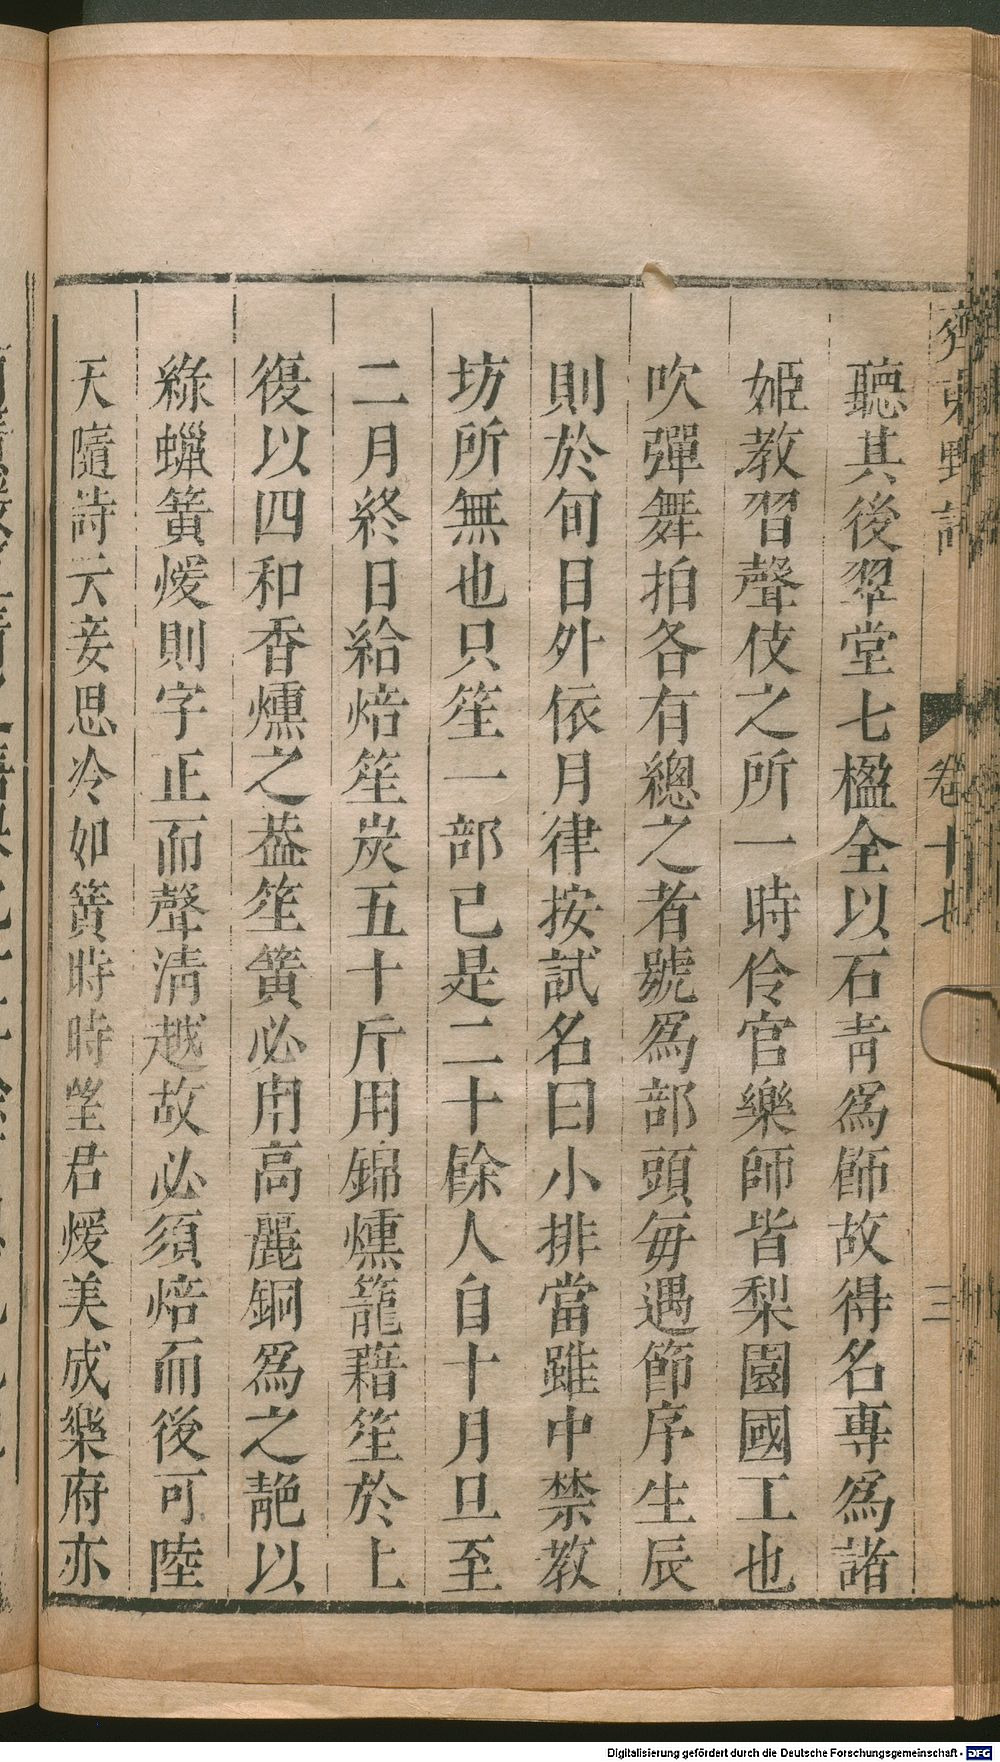 齊東野語 卷十七 三
聽其後翠堂七楹全以石青爲飾故得名專爲諸
姬教習聲伎之所一時伶官樂師皆梨園國工也
吹彈舞拍各有總之者號爲部頭每遇節序生辰
則於旬日外依月律按試名曰小排當雖中禁教
坊所無也只笙一部已是二十餘人自十月旦至
二月終日給焙笙炭五十斤用錦燻籠藉笙於上
復以四和香燻之葢笙簧必用高麗銅爲之䩗以
綠蠟簧煖則字正而聲清越故必須焙而後可陸
天隨詩云妾思冷如簧時時望君煖美成樂府亦
Digitalisierung gefördert durch die Deutsche Forschungsgemeinschaft - DFG